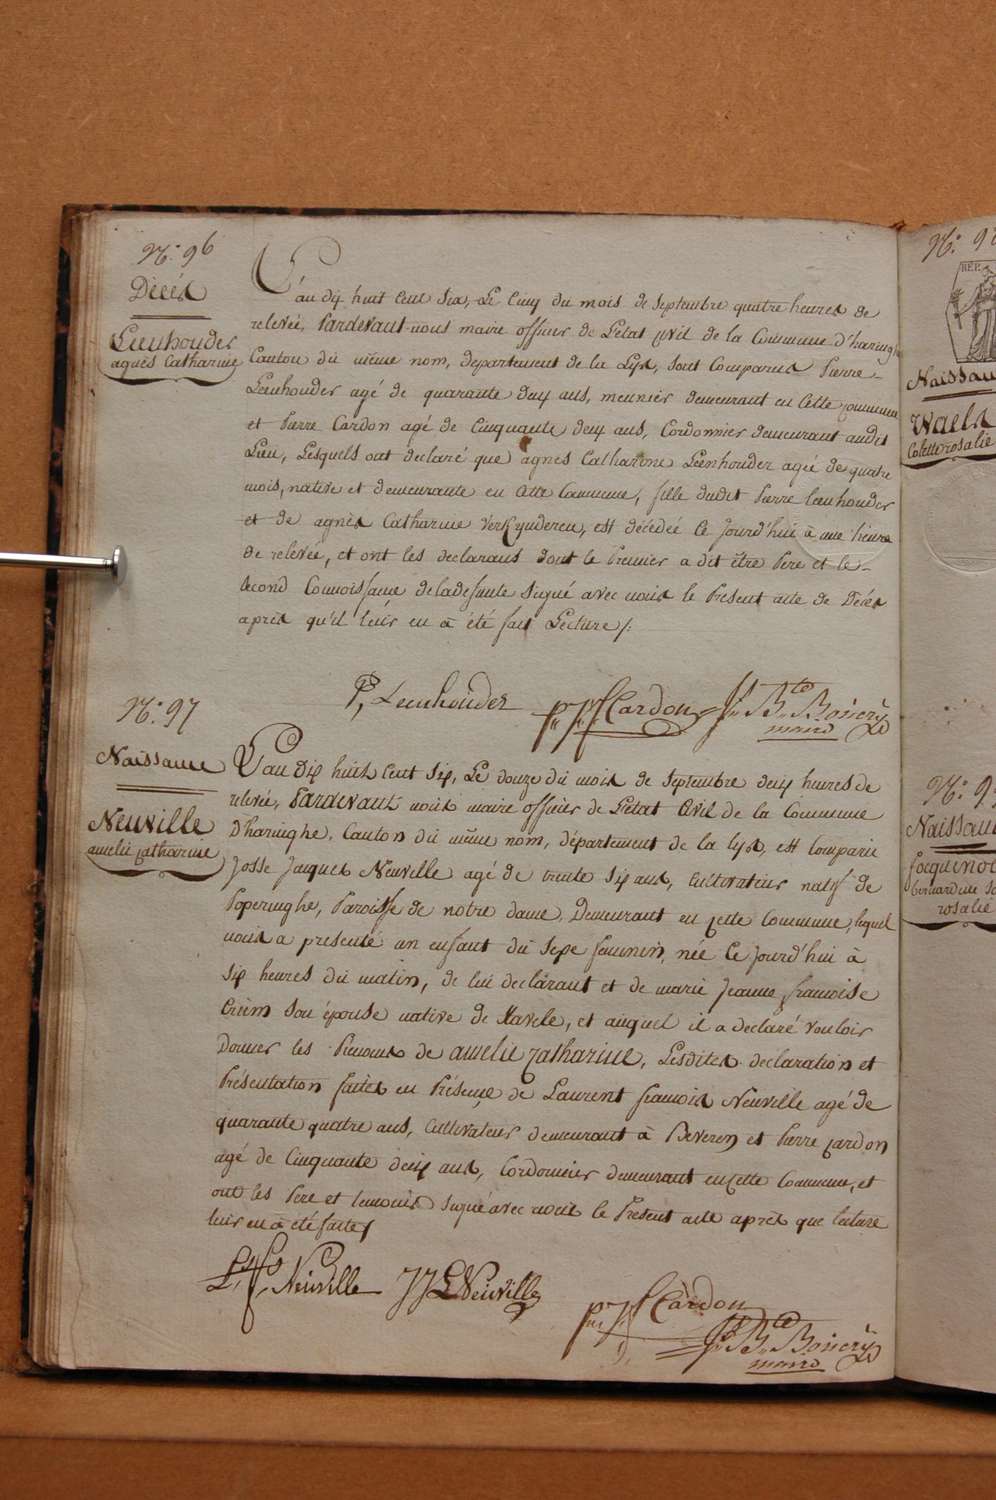 N.° 96
Décès
Leenhouder
agnès Catharine
L'an dix huit cent six, Le Cinq du mois de Septembre quatre heures de
relevée, Pardevant nous maire officier de L'état civil de la Commune d'haringhe
Canton du même nom, département de la Lys, sont Comparus Pierre
Leenhouder agé de quarante deux ans, meunier demeurant en Cette Commune
et Pierre Cardon agé de Cinquante deux ans, Cordonnier demeurant audit
Lieu, Lesquels ont declaré que agnes Catharine Leenhouder agée de quatre
mois, native et demeurante en Cette Commune, fille dudit Pierre Leenhouder
et de agnès Catharine Verkyndereu, est décédée Ce Jourd'hui à une heure
de relevée, et ont les declarans dont le Premier a dit être Pere et le
second Connoissance de la defunte signé avec nous le Present acte de Décès
après qu'il leur en à été fait Lecture /.
P, Leenhouder
Cardon
J.n B.te Boncry
maire
N.° 97
Naissance
Neuville
amelie Catharine
L'an Dix huit Cent six, Le douze du mois de Septembre deux heures de
relevée, Pardevant nous maire officier de L'état Civil de la Commune
D'haringhe, Canton du même nom, département de la Lys, est Comparu
Josse Jacques Neuville agé de trente six ans, Cultivateur natif de
Poperinghe, Paroisse de notre dame, Demeurant en Cette Commune, lequel
nous a presenté un enfant du sexe feminin, née Ce Jourd'hui à
six heures du matin, de lui déclarant et de marie Jeanne francoise
son épouse native de, et auquel il a declaré vouloir
Donner les Prenoms de amelie Catharine, Lesdites declaration et
Présentation faites en Présence de Laurent francois Neuville agé de
quarante quatre ans, Cultivateur demeurant à Beveren et Pierre Cardon
agé de Cinquante deux ans, Cordonnier demeurant en Cette Commune, et
ont les Pere et temoins signé avec nous le Present acte après que lecture
leur en à été faite /
Neuville
J J Neuville
Cardon
J.n B.te Boncry
maire
N.°
REP.
Naissan
Waels
Coletterosalie
N.°
Naissan
rosalie